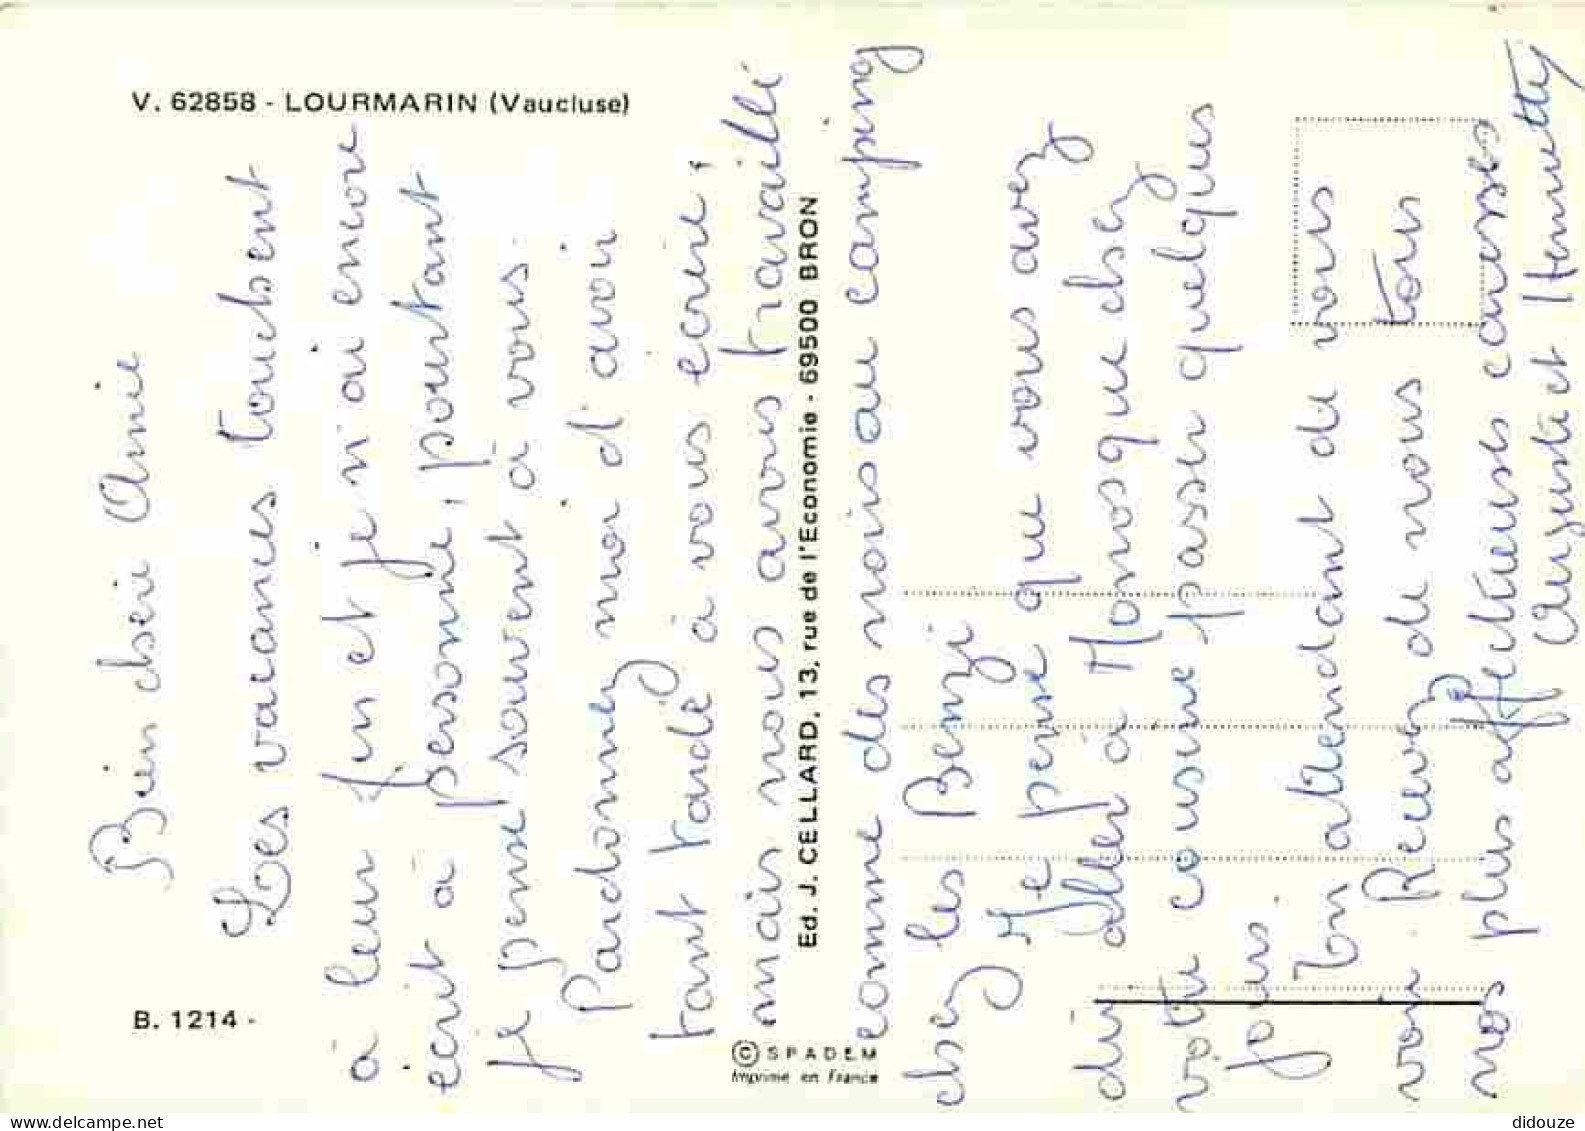 V. 62858 - LOURMARIN (Vaucluse)
Bien chère Amie
Les vacances touchent
à leur fin et je n'ai encore
écrit à personne, pourtant
je pense souvent à vous.
Pardonnez moi d'avoir
tant tardé à vous écrire,
mais nous avons travaillé
comme des noirs au camping
chez les Benzi
Je pense que vous avez
dû aller à Manosque chez
votre cousine passer quelques
jours.
En attendant de vous
voir. Recevez de nous tous
nos plus affectueuses caresses
Auguste et Henriette
B. 1214 -
Ed. J. CELLARD, 13, rue de l'Economie - 69500 BRON
© SPADEM
Imprimé en France
www.delcampe.net
didouze